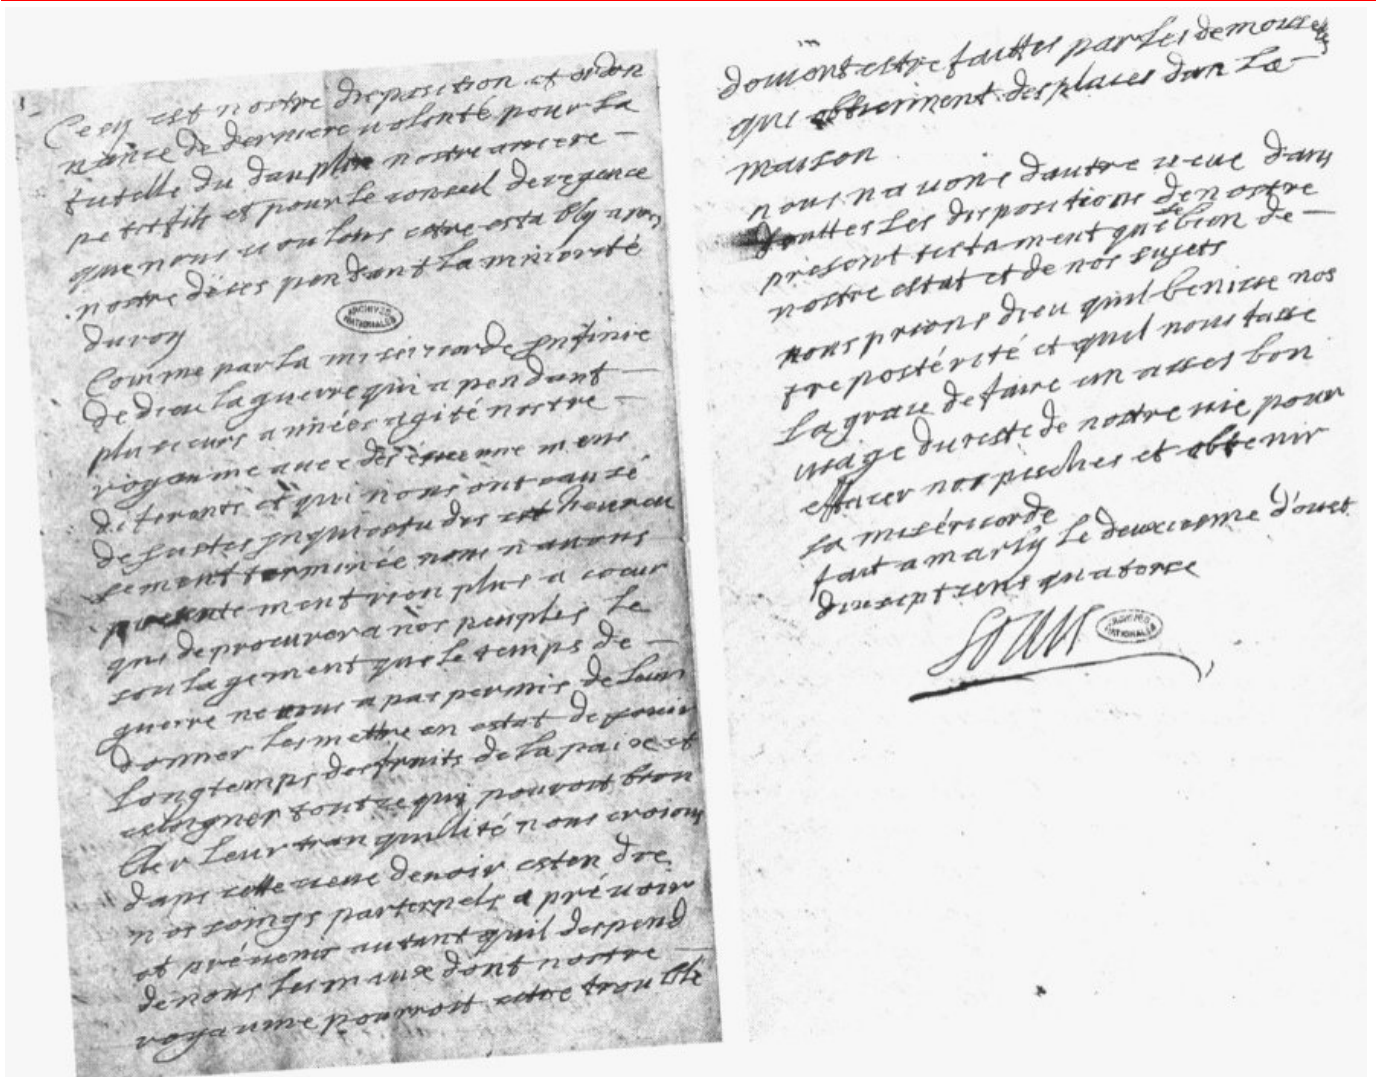 Cecy est nostre disposition et ordon
nance de derniere uolonté pour la
tutelle du dauphin nostre arriere
petit fils et pour le conseil de regence
que nous uoulons estre establу apres
nostre déces pendant la minorité
du roy
ARCHIVES
NATIONALES
Comme par la misericorde infinie
de dieu la guerre qui a pendant
plusieurs années agité nostre
royaume auec des éuenemens
diferents et qui nous ont causé
de justes inquiestudes est heureu
sement terminée nous n auons
présentement rien plus a coeur
que de procurer a nos peuples le
soulagement que le temps de
guerre ne nous a pas permis de leur
donner les mettre en estat de jouir
longtemps des fruits de la paix et
esloigner tout ce qui pouroit trou
bler leur tranquillité nous croions
dans cette ueue deuoir estendre
nos soings paternels a préuoir
et préuenir autant quil despend
de nous les maux dont nostre
royaume pourroit estre troublé
doiuont estre faittes par les demoiselles
qui obtiennent des places dans la
maison
nous n auons dautre ueue dans
touttes les dispositions de nostre
présent testament que le bien de
nostre estat et de nos sujets
nous prions dieu quil benisse nos
tre postérité et quil nous fasse
la grace de faire un asses bon
usage du reste de nostre uie pour
effacer nos peches et obtenir
sa miséricorde
fait a marly le deuxiesme d'oust
dixsept cens quatorse
Louis
ARCHIVES
NATIONALES